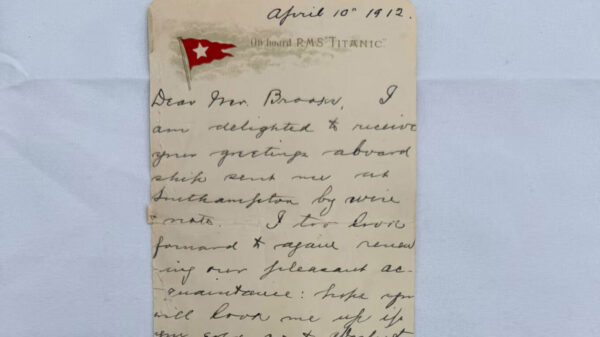 April 10th 1912.
On board R.M.S. "TITANIC."
Dear Mr. I
am delighted to receive
your greetings aboard
ship sent me at
Southampton by wire
& note. I too look
forward to again renew
ing our pleasant ac-
quaintance: hope you
will look me up if
you